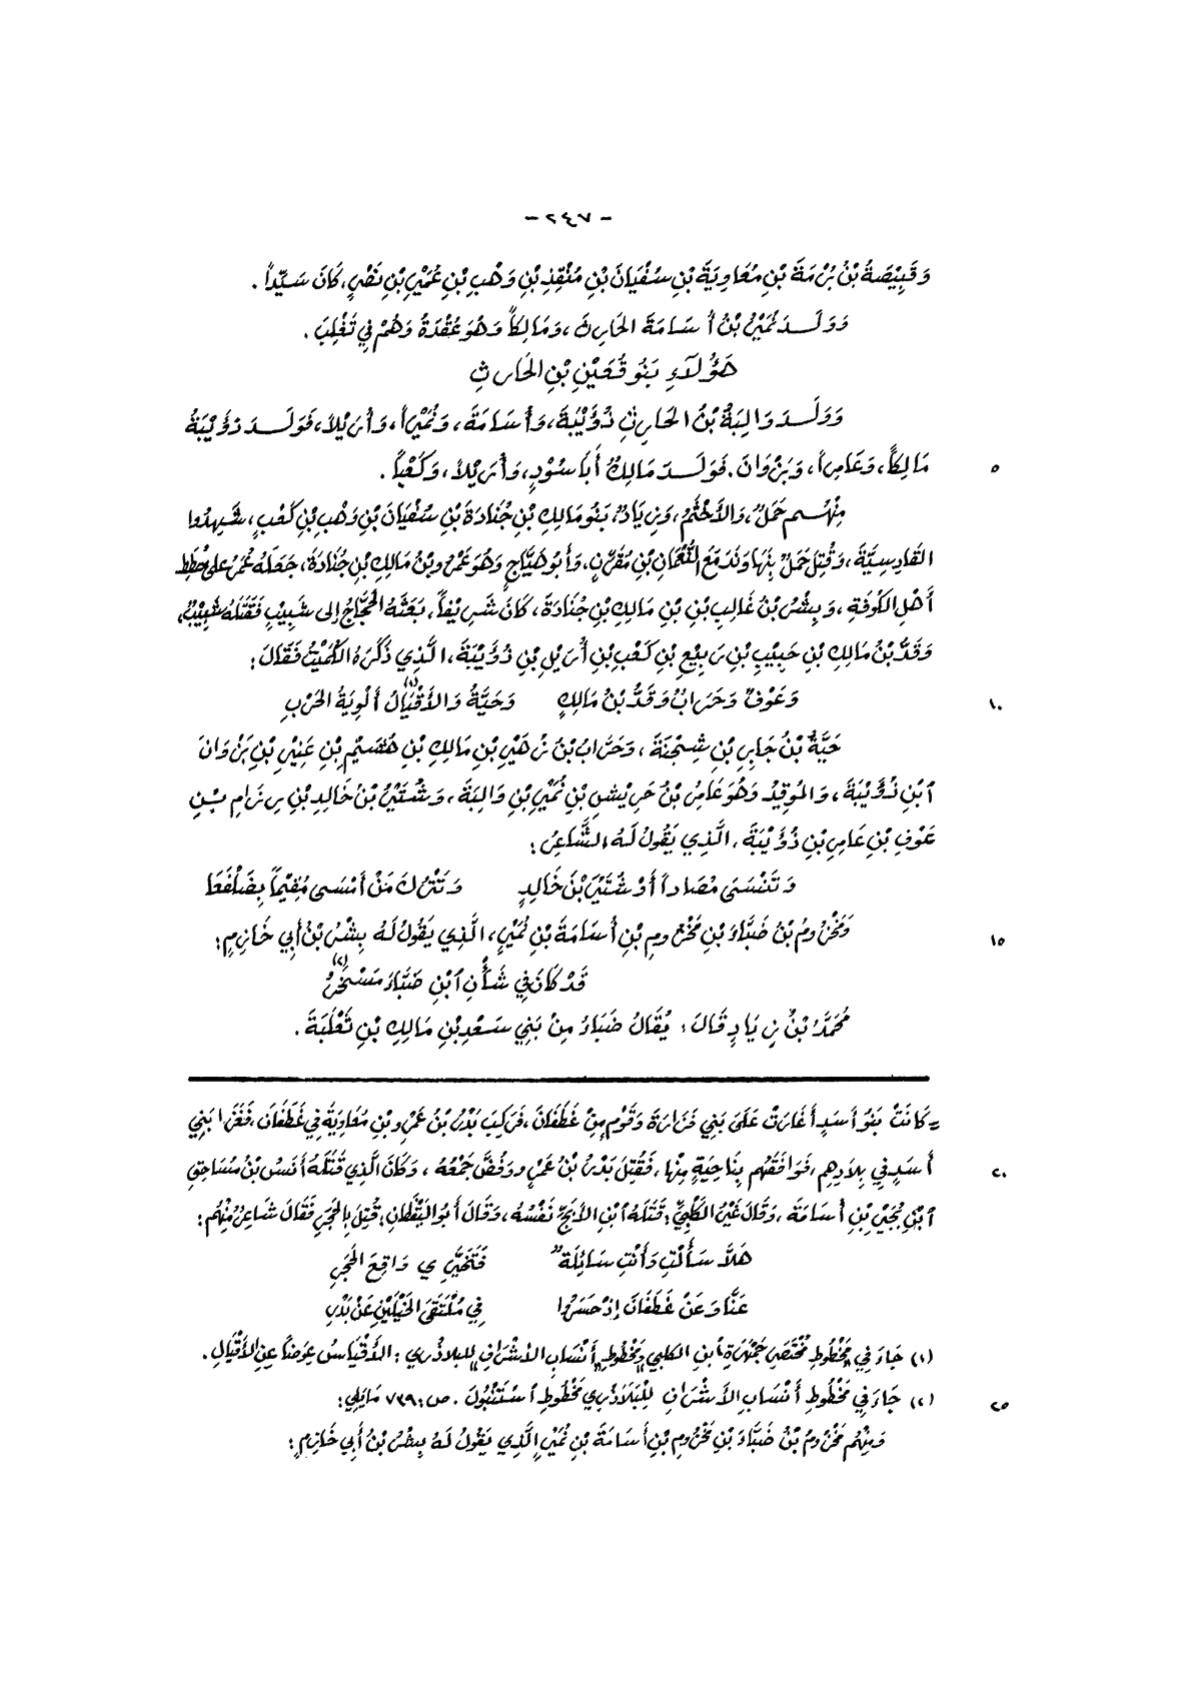 - ٧٤٢ -
وَقَبِيْصَةُ بْنُ بُرْمَةَ بْنِ مُعَاوِيَةَ بْنِ سُفْيَانَ بْنِ مُنْقِذِ بْنِ وَهْبِ بْنِ عُمَيْرِ بْنِ نَصْرٍ، كَانَ سَيِّداً .
وَوَلَدَ نُمَيْرُ بْنُ أُسَامَةَ الحَارِثَ ، وَمَالِكاً وَهُوَ عُقْدَةُ وَهُمْ فِي تَغْلِبَ .
هَؤُلَآءِ بَنُو قُعَيْنِ بْنِ الحَارِثِ
وَوَلَدَ وَالِبَةُ بْنُ الحَارِثِ ذُؤَيْبَةَ، وَأُسَامَةَ ، وَنُمَيْراً، وَأُرَيْلاً، فَوَلَدَ ذُؤَيْبَةُ
مَالِكاً، وَعَامِراً، وَبَزْوَانَ. فَوَلَدَ مَالِكٌ أَبَا سُوْدٍ، وَأُرَيْلاً، وَكَعْباً . ٥
مِنْهُم حَمَلٌ، وَالأَخْثَمُ، وَزِيَادٌ، بَنُو مَالِكِ بْنِ جُنَادَةَ بْنِ سُفْيَانَ بْنِ وَهْبِ بْنِ كَعْبٍ، شَهِدُوا
القَادِسِيَّةَ، وَقُتِلَ حَمَلٌ بِنَهَاوَنْدَ مَعَ النُّعْمَانِ بْنِ مُقَرِّنٍ، وَأَبُو هَيَّاجٍ وَهُوَ عَمْرُو بْنُ مَالِكِ بْنِ جُنَادَةَ، جَعَلَهُ عُمَرُ عَلَى خُطَطِ
أَهْلِ الكُوْفَةِ ، وَبِشْرُ بْنُ غَالِبِ بْنِ مَالِكِ بْنِ جُنَادَةَ، كَانَ شَرِيْفاً، بَعَثَهُ الحَجَّاجُ إِلى شَبِيْبٍ فَقَتَلَهُ شَبِيْبٌ،
وَقَدُّ بْنُ مَالِكِ بْنِ حَبِيْبِ بْنِ رَبِيْعِ بْنِ كَعْبِ بْنِ أُرَيْلِ بْنِ ذُؤَيْبَةَ، الَّذِي ذَكَرَهُ الكُمَيْتُ فَقَالَ:
وَعَوْفٌ وَحَرَابٌ وَقَدُّ بْنُ مَالِكٍ وَحَيَّةُ وَالأَقْيَالُ(١) أَلْوِيَةُ الحَرْبِ ١٠
حَيَّةُ بْنُ جَابِرِ بْنِ شِجْنَةَ ، وَحَرَابُ بْنُ زُهَيْرِ بْنِ مَالِكِ بْنِ هُشَيْمِ بْنِ عَنِيْرِ بْنِ بَزْوَانَ
ٱبْنِ ذُؤَيْبَةَ، وَالمُوقِدُ وَهُوَ عَامِرُ بْنُ حَرِيْشِ بْنِ نُمَيْرِ بْنِ وَالِبَةَ، وَشُتَيْرُ بْنُ خَالِدِ بْنِ رِزَامِ بْنِ
عَوْفِ بْنِ عَامِرِ بْنِ ذُؤَيْبَةَ ، الَّذِي يَقُولُ لَهُ الشَّاعِرُ:
وَتَنْسَى مُصَاداً أَوْ شُتَيْرَ بْنَ خَالِدٍ وَتَتْرُكَ مَنْ أَمْسَى مُقِيْماً بِضَلْفَعَا
وَمَخْزُومُ بْنُ ضَبَّاءَ بْنِ مَخْزُومِ بْنِ أُسَامَةَ بْنِ نُمَيْرٍ، الَّذِي يَقُولُ لَهُ بِشْرُ بْنُ أَبِي خَازِمٍ: ١٥
قَدْ كَانَ فِي شَأْنِ ٱبْنِ ضَبَّاءَ مَسْخَرٌ(٢)
مُحَمَّدُ بْنُ زِيَادٍ قَالَ : يُقَالُ ضَبَاءُ مِنْ بَنِي سَعْدِ بْنِ مَالِكِ بْنِ ثَعْلَبَةَ .
= كَانَتْ بَنُو أَسَدٍ أَغَارَتْ عَلَى بَنِي فَزَارَةَ وَقَوْمٍ مِنْ غَطَفَانَ، فَرَكِبَ بَدْرُ بْنُ عَمْرِو بْنِ مُعَاوِيَةَ فِي غَطَفَانَ، فَغَزَا بَنِي
أَسَدٍ فِي بِلَادِهِم، فَوَافَقَهُم بِنَاحِيَةٍ مِنْهَا، فَقُتِلَ بَدْرُ بْنُ عَمْرٍو وَفُضَّ جَمْعُهُ ، وَكَانَ الَّذِي قَتَلَهُ أَنَسُ بْنُ مُسَاحِقِ ٢٠
ٱبْنِ بُجَيْرِ بْنِ أُسَامَةَ ، وَقَالَ غَيْرُ الكَلْبِيِّ: قَتَلَهُ ٱبْنُ الأَبَحِّ نَفْسُهُ، وَقَالَ أَبُو اليَقْظَانِ: قُتِلَ بِالحَجَرِ فَقَالَ شَاعِرٌ مِنْهُم:
هَلَّا سَأَلْتِ وَأَنْتِ سَائِلَةٌ فَتَخَيَّرِي وَاقِعَ الحَجَرِ
عَنَّا وَعَنْ غَطَفَانَ إِذْ حَسَرُوا فِي مُلْتَقَى الخَيْلَيْنِ عَنْ بَدْرِ
(١) جَاءَ فِي مَخْطُوطِ مُخْتَصَرِ جَمْهَرَةِ ٱبنِ الكلبي وَمَخْطُوطِ أَنْسَابِ الأَشْرَافِ للبلاذُري : الأَقْيَاسُ عِوَضاً عِنِ الأَقْيَالِ .
(٢) جَاءَ فِي مَخْطُوطِ أَنْسَابِ الأَشْرَافِ لِلْبَلَاذُرِي مَخْطُوطِ ٱسْتَنْبُولَ . ص: ٧٣٩ مَايَلِي: ٢٥
وَمِنْهُم مَخْزُومُ بْنُ ضَبَّاءَ بْنِ مَخْزُومِ بْنِ أُسَامَةَ بْنِ نُمَيْرٍ الَّذِي يَقُولُ لَهُ بِشْرُ بْنُ أَبِي خَازِمٍ: